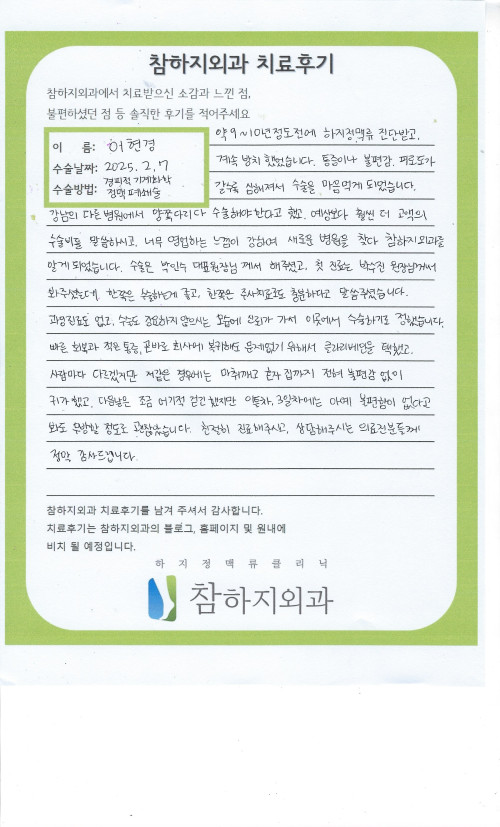 참하지외과 치료후기
참하지외과에서 치료받으신 소감과 느낀 점,
불편하셨던 점 등 솔직한 후기를 적어주세요
이 름: 허현경
수술날짜: 2025. 2. 7
수술방법: 경피적 기계화학 정맥폐쇄술
약 9~10년정도전에 하지정맥류 진단받고,
계속 방치 했었습니다. 통증이나 불편감, 피로도가
갈수록 심해져서 수술을 마음먹게 되었습니다.
강남의 다른병원에서 양쪽다리 다 수술해야한다고 했고, 예상보다 훨씬 더 고액의
수술비를 말씀하시고, 너무 영업하는 느낌이 강하여 새로운 병원을 찾다 참하지외과를
알게 되었습니다. 수술은 박인수 대표원장님께서 해주셨고, 첫 진료는 박수진 원장님께서
봐주셨는데, 한쪽은 수술하는게 좋고, 한쪽은 주사치료로도 충분하다고 말씀주셨습니다.
과잉진료도 없고, 수술도 강요하지 않으시는 모습에 신뢰가 가서 이곳에서 수술하기로 정했습니다.
빠른 회복과 적은 통증, 곧바로 회사에 복귀해도 문제없기 위해서 클라리베인을 택했고,
사람마다 다르겠지만 저같은 경우에는 마취깨고 혼자 집까지 전혀 불편감 없이
귀가했고, 다음날은 조금 어기적 걷긴 했지만 이틀차, 3일차에는 아예 불편함이 없다고
봐도 무방할 정도로 괜찮았습니다. 친절히 진료해주시고, 상담해주시는 의료진분들께
정말 감사드립니다.
참하지외과 치료후기를 남겨 주셔서 감사합니다.
치료후기는 참하지외과의 블로그, 홈페이지 및 원내에
비치 될 예정입니다.
하지정맥류클리닉
참하지외과